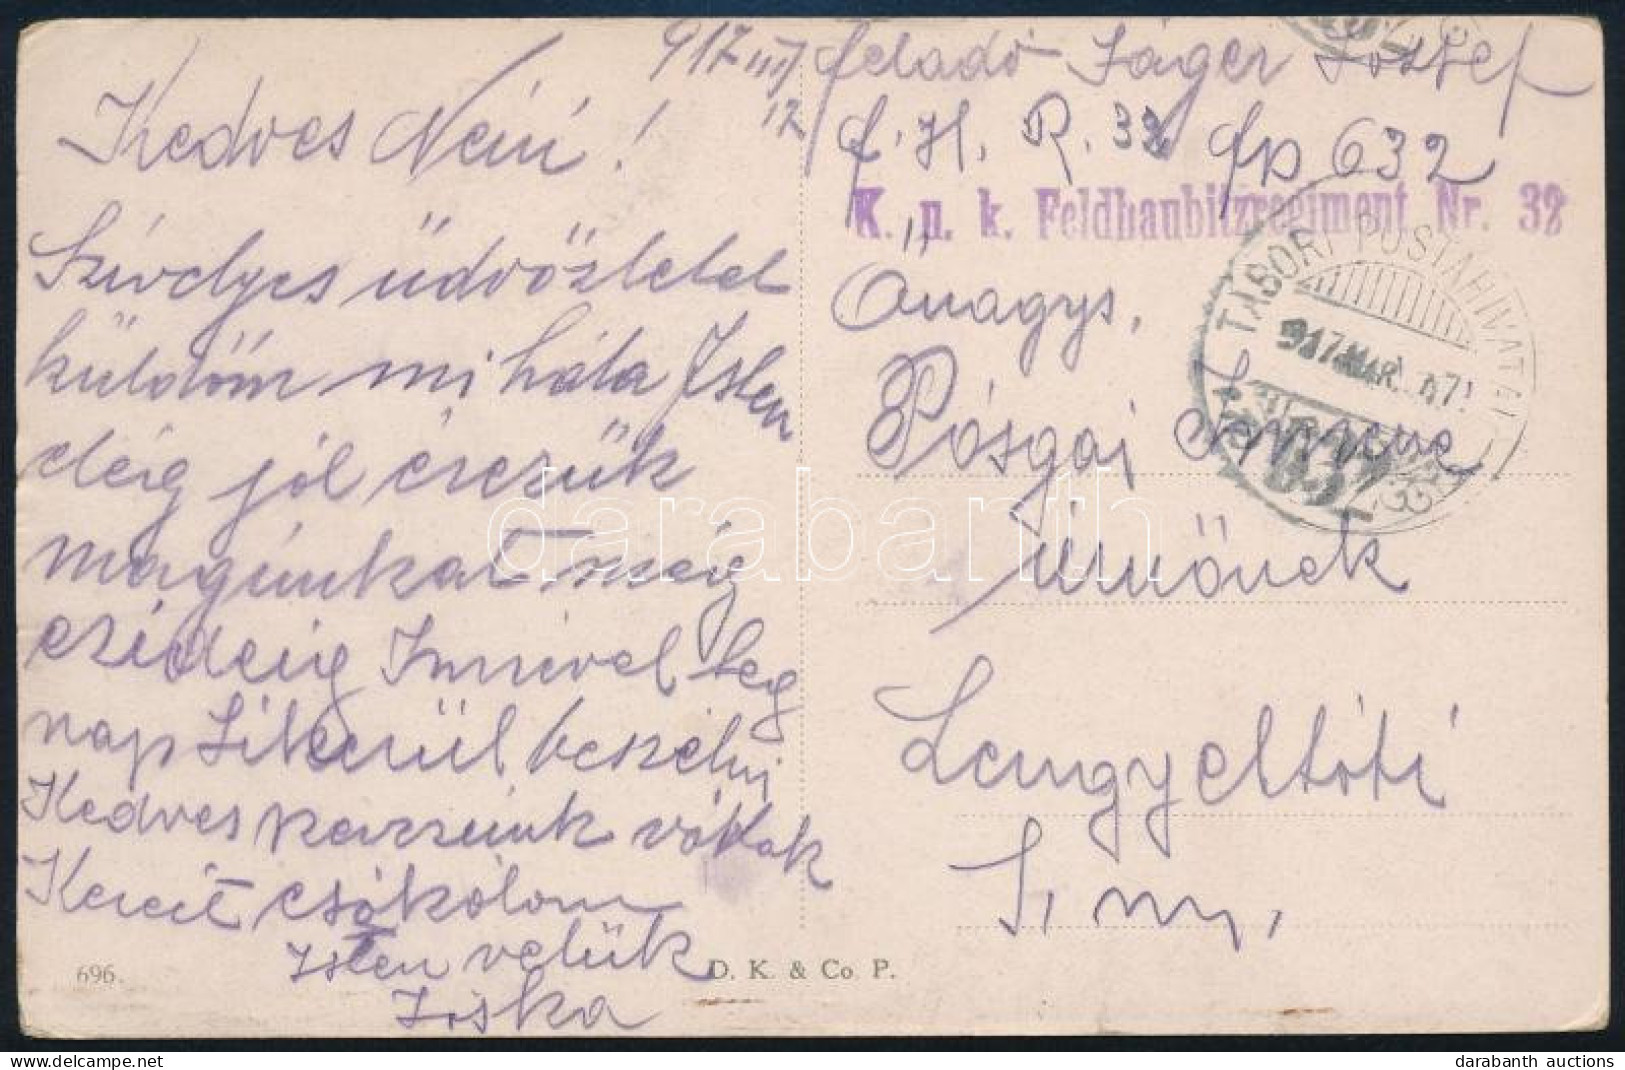 917 III/17
Kedves Néni!
Szívélyes üdvözletet
küldöm mi hála Isten
elég jól érezük
magunkat még
ezideig Imrével teg
nap sikerül beszélni
Kedves
Kezeit csókolom
Isten velük
Jóska
696.
D. K. & Co. P.
feladó Jáger József
f. H. R. 32 fp 632
K. u. k. Feldhaubitzregiment Nr. 32
TÁBORI POSTAHIVATAL
917 MÁR. 17
Önagys,
Pósgai
Úrnőnek
Lengyeltóti
S. m.
darabanth
darabanth auctions